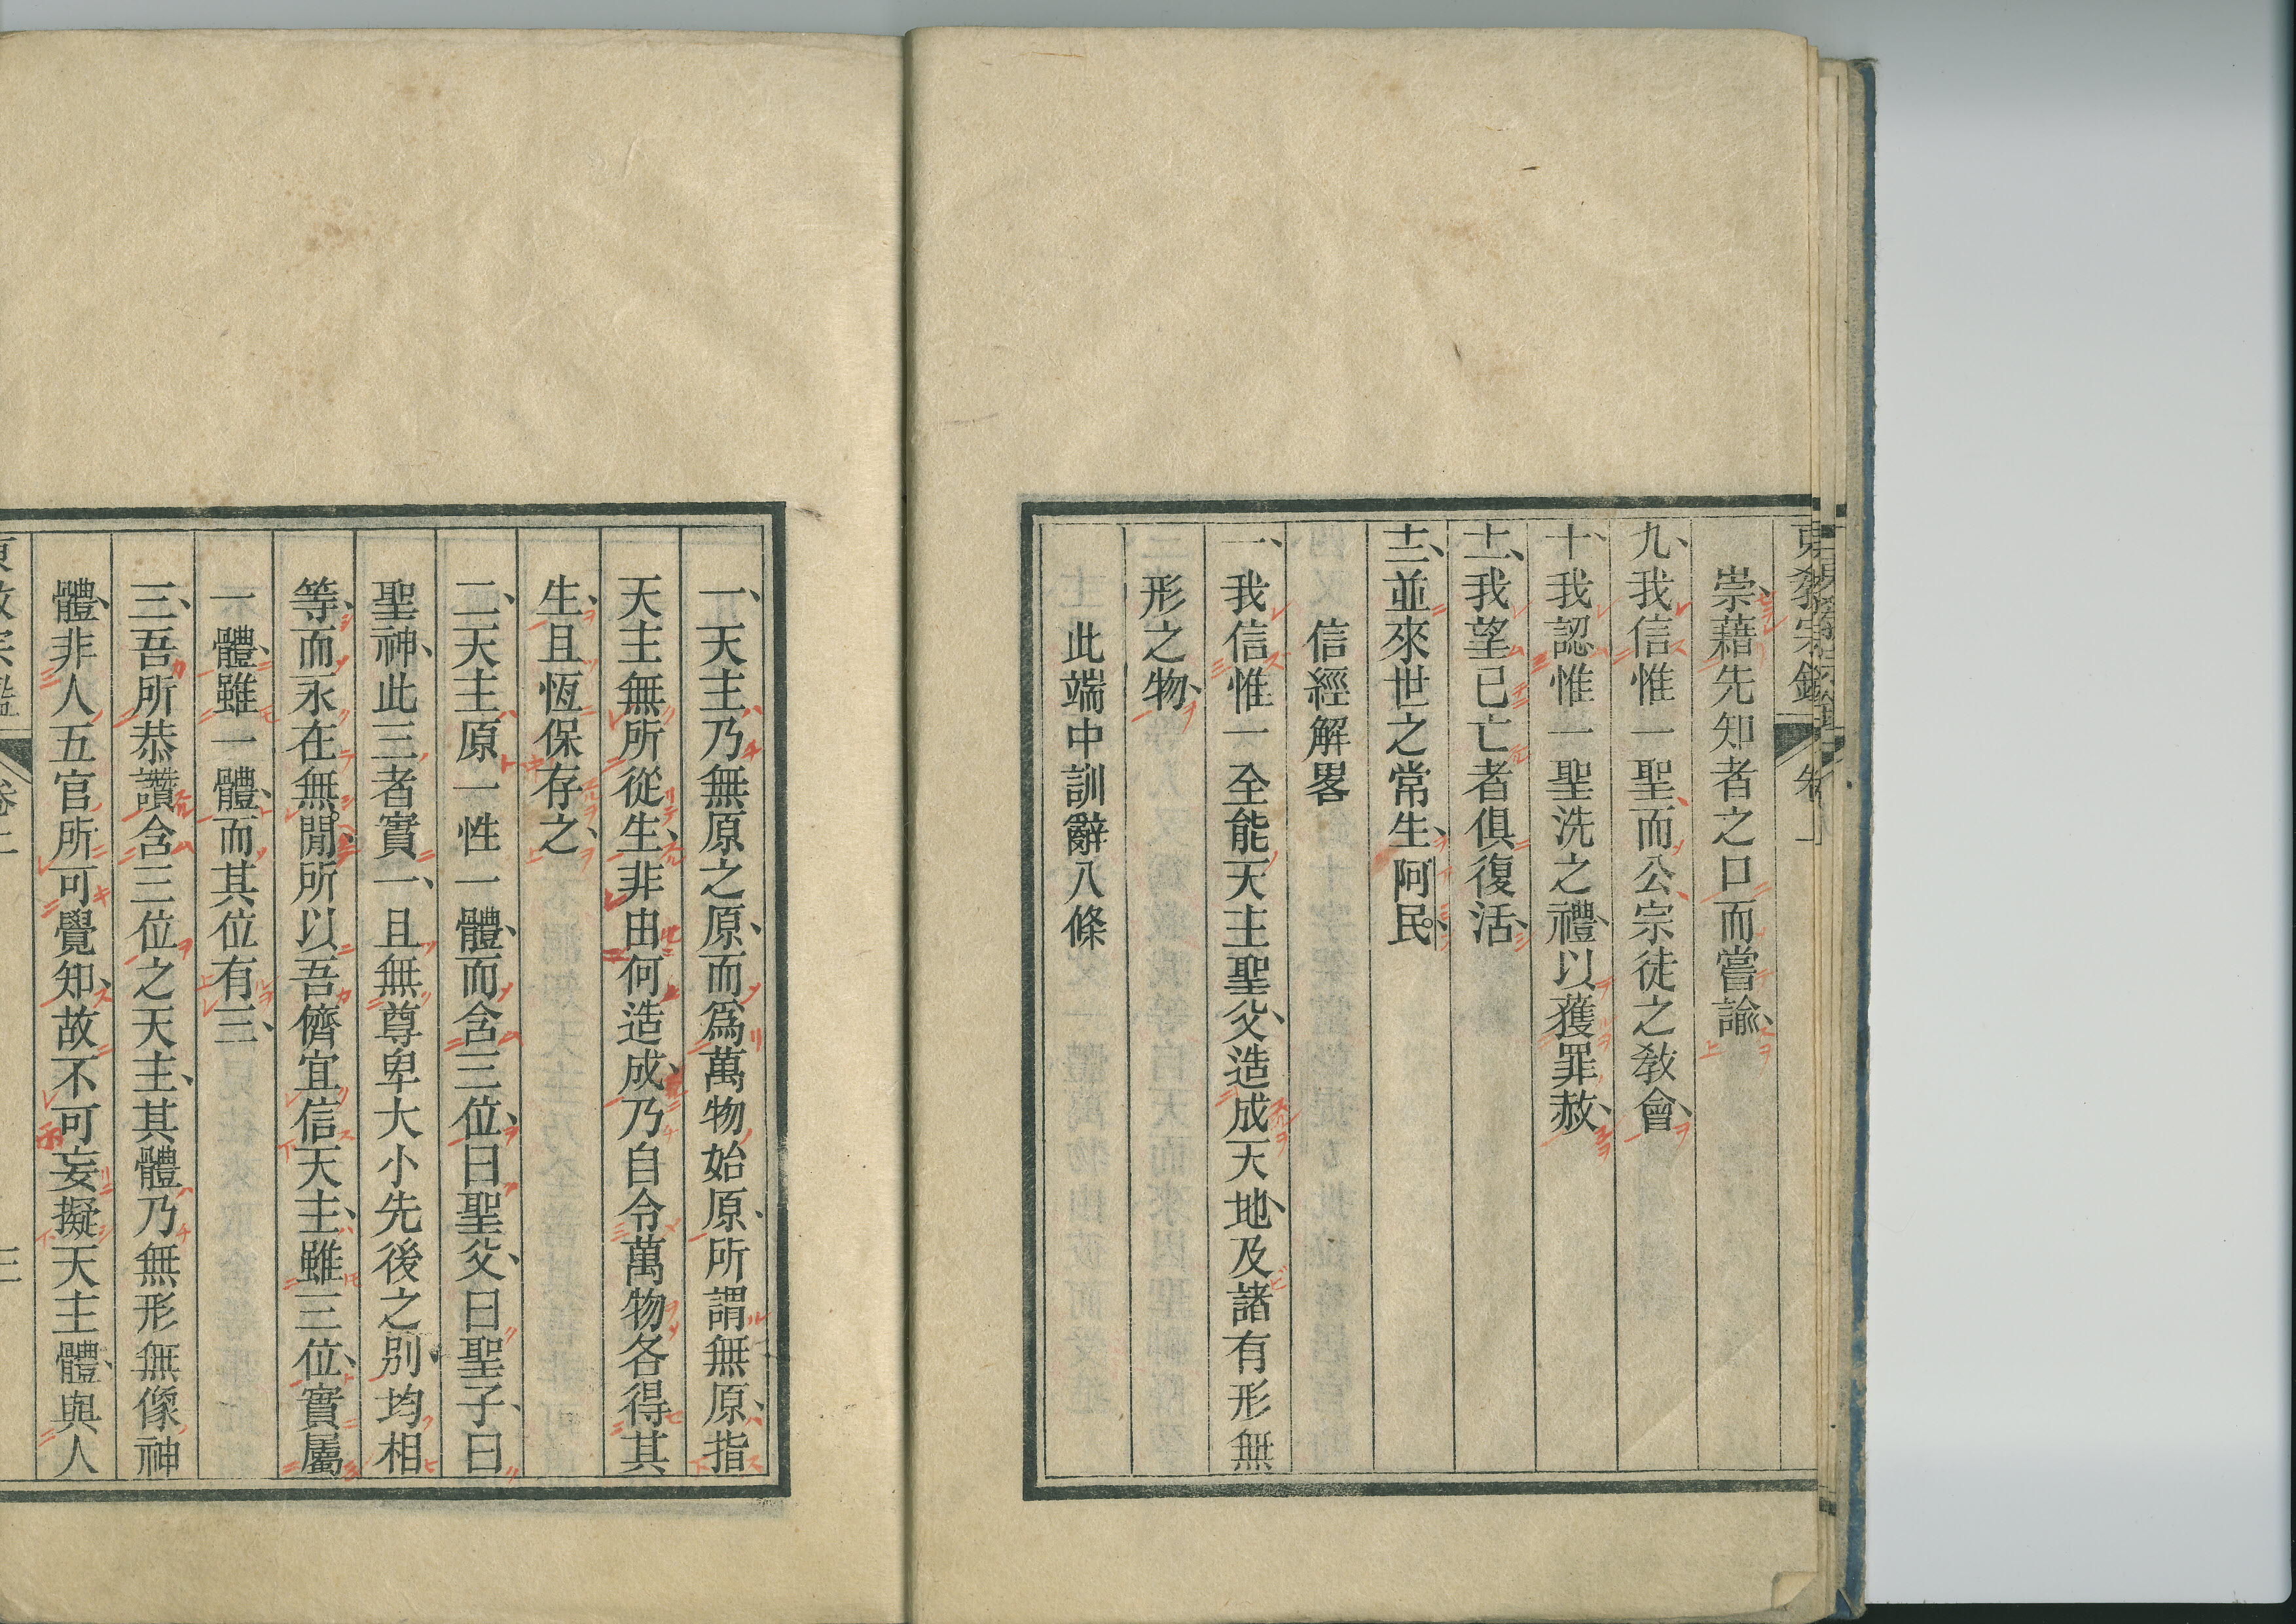 東教宗鑑
卷一
崇、藉先知者之口而嘗諭、
九、我信惟一聖、而公、宗徒之教會、
十、我認惟一聖洗之禮、以獲罪赦、
十一、我望已亡者俱復活、
十二、並來世之常生、阿民。
信經解畧
一、我信惟一全能天主聖父、造成天地、及諸有形無
形之物、
此端中訓辭八條
一、天主乃無原之原、而爲萬物始原、所謂無原、指
天主無所從生、非由何造成、乃自令萬物各得其
生、且恆保存之、
二、天主原一性一體、而含三位、曰聖父、曰聖子、曰
聖神、此三者實一、且無尊卑大小先後之別、均相
等、而永在無間、所以吾儕宜信天主、雖三位、實屬
一體、雖一體、而其位有三、
三、吾所恭讚含三位之天主、其體乃無形無像神
體、非人五官所可覺知、故不可妄擬天主體、與人
東教宗鑑
卷上
三